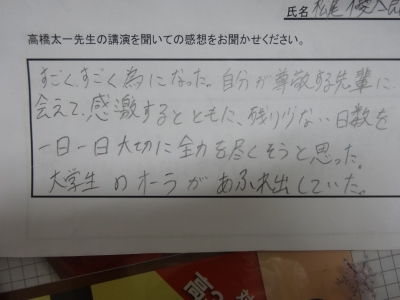 氏名 松尾
高橋太一先生の講演を聞いての感想をお聞かせください。
すごくすごく為になった。自分が尊敬する先輩に
会えて、感激するとともに、残り少ない日数を
一日一日大切に全力を尽くそうと思った。
大学生のオーラがあふれ出していた。